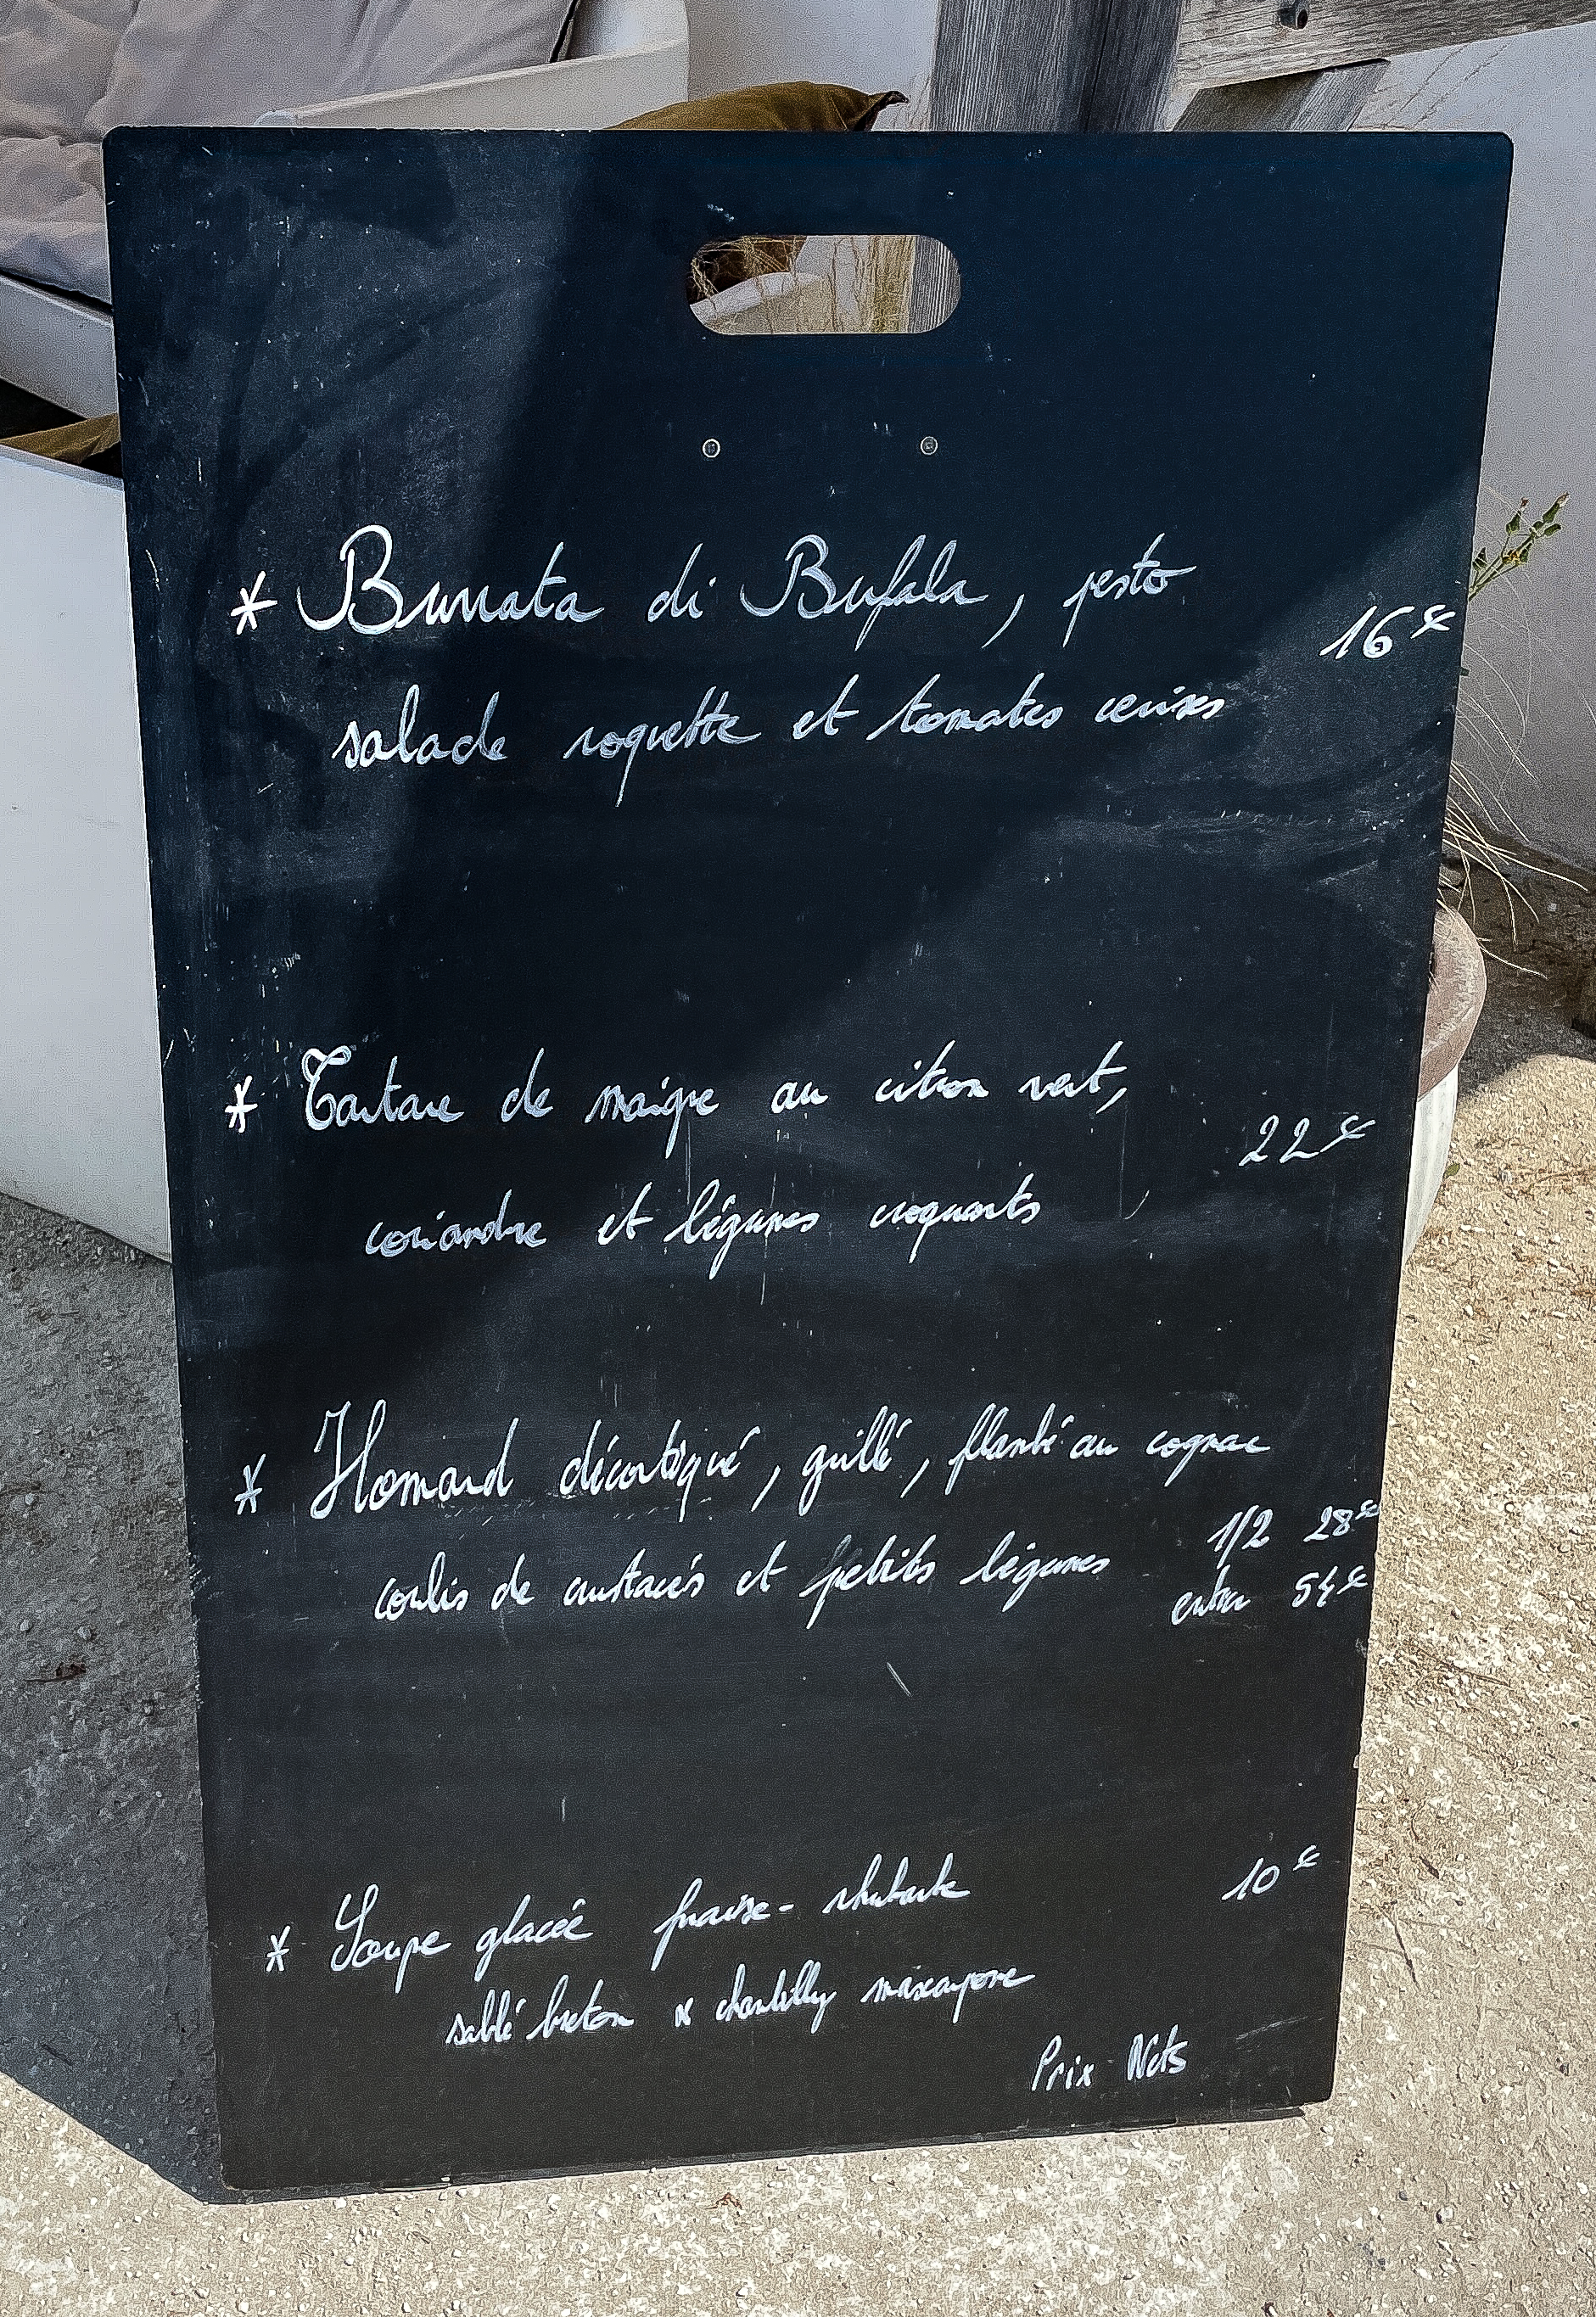 * Burrata di Bufala, pesto
16€
salade roquette et tomates cerises
* Tartare de maigre au citron vert,
22€
coriandre et légumes croquants
* Homard décortiqué, grillé, flambé au cognac
1/2 28€
coulis de crustacés et petits légumes
entier 54€
* Soupe glacée fraise-rhubarbe
10€
sablé breton & chantilly mascarpone
Prix Nets